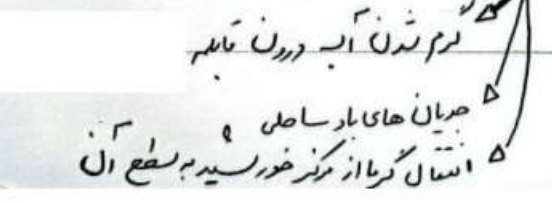 گرم شدن آب درون قابلمه
جریان های باد ساحلی
انتقال گرما از مرکز خورشید به سطح آن